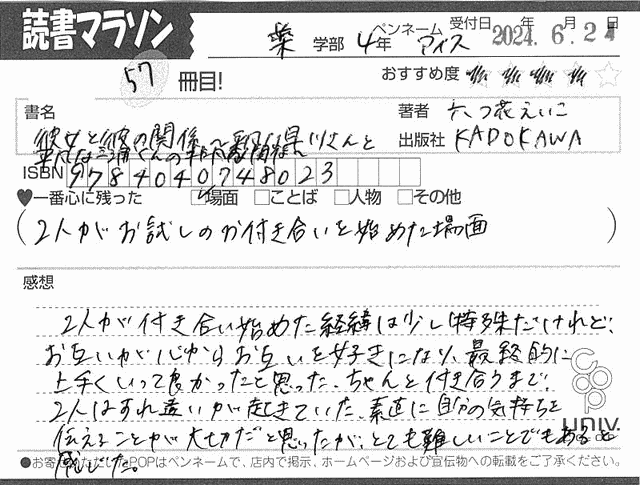 読書マラソン
薬 学部 4年 ペンネーム アイス 受付日 2024年 6月 2 日
57 冊目! おすすめ度
書名
彼女と彼の関係 〜
平凡な三浦くんの
著者 六つ花えいこ
出版社 KADOKAWA
ISBN 9784040748023
♥一番心に残った □場面 □ことば □人物 □その他
(2人がお試しのお付き合いを始めた場面)
感想
2人が付き合い始めた経緯は少し特殊だけれど、
お互いが心からお互いを好きになり、最終的に
上手くいって良かったと思った。ちゃんと付き合うまで、
2人はすれ違いが起きていた。素直に自分の気持ちを
伝えることが大切だと思ったが、とても難しいことでもあると
感じた。
coop
UNIV.
●お寄 いただいたPOPはペンネームで、店内で掲示、ホームページおよび宣伝物への転載をご了承ください。